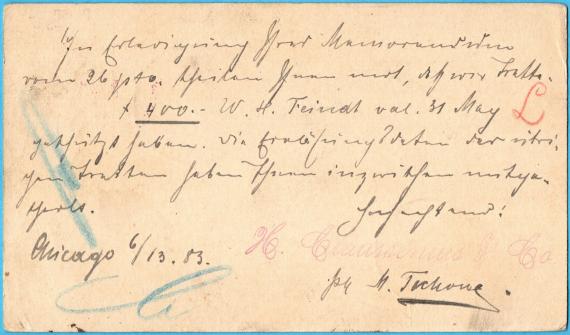 In Erledigung Ihres Memorandum
vom 26 pto. theilen Ihnen mit, daß wir Tratte
400.- W. H. Feindt val. 31 May
geschützt haben. Die Einlösungsdaten der übri-
gen Tratten haben Ihnen inzwischen mitge-
theilt.
Hochachtend!
Chicago 6/13. 83.
H. Claussenius & Co
M. Techow.
L